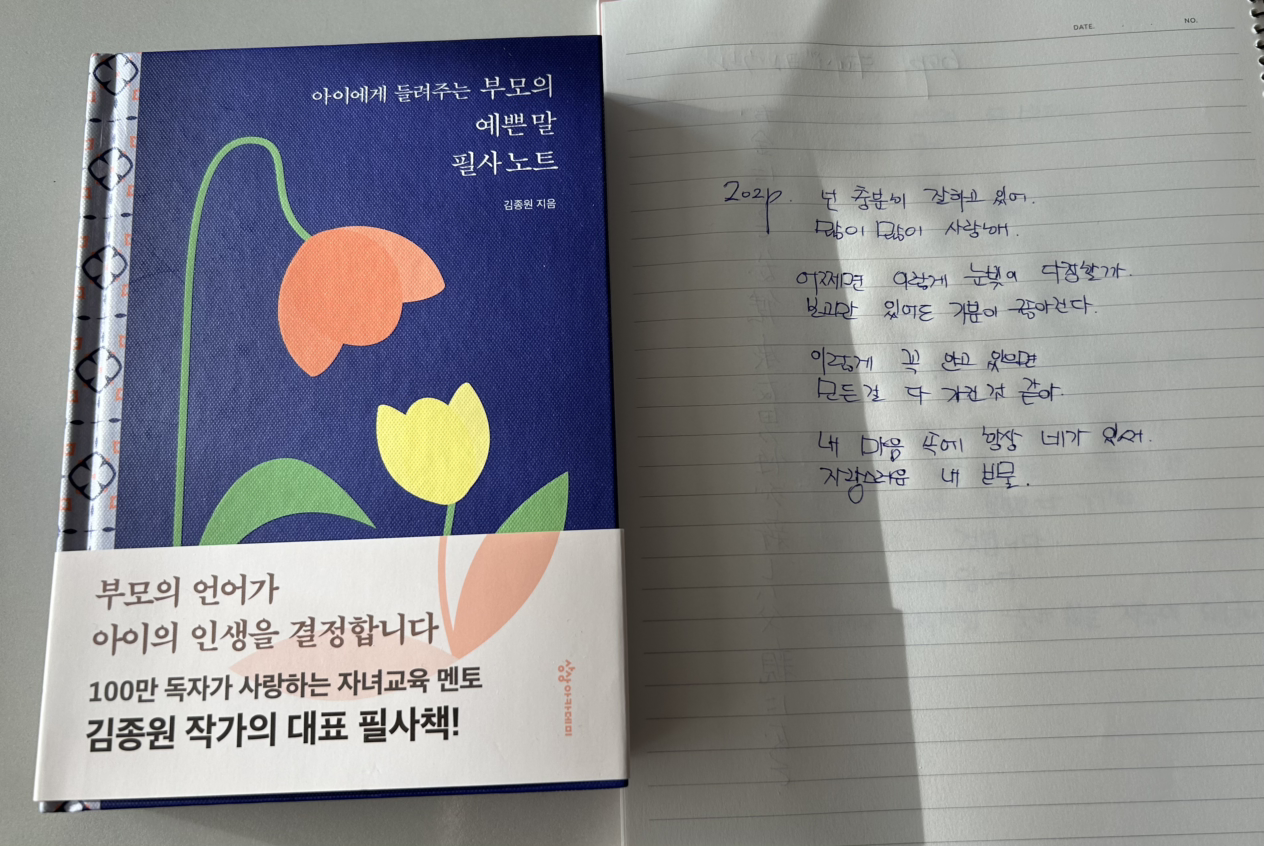 아이에게 들려주는 부모의
예쁜 말
필사 노트
김종원 지음
부모의 언어가
아이의 인생을 결정합니다
100만 독자가 사랑하는 자녀교육 멘토
김종원 작가의 대표 필사책!
상상아카데미
DATE. . . NO.
202p. 넌 충분히 잘하고 있어.
많이 많이 사랑해.
어쩌면 이렇게 눈빛이 다정할까
보고만 있어도 기분이 좋아진다.
이렇게 꼭 안고 있으면
모든 걸 다 가진 것 같아.
내 마음 속에 항상 네가 있어.
자랑스러운 내 보물.